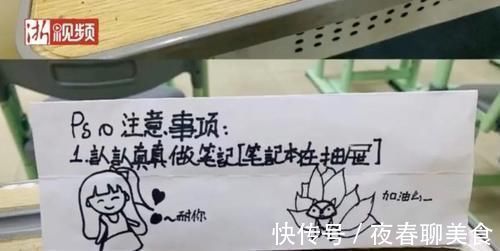 浙视频
Ps の注意事项:
1.認認真真做笔記[笔記本在抽屉]
~耐你
加油
快传号 / 夜春聊美食